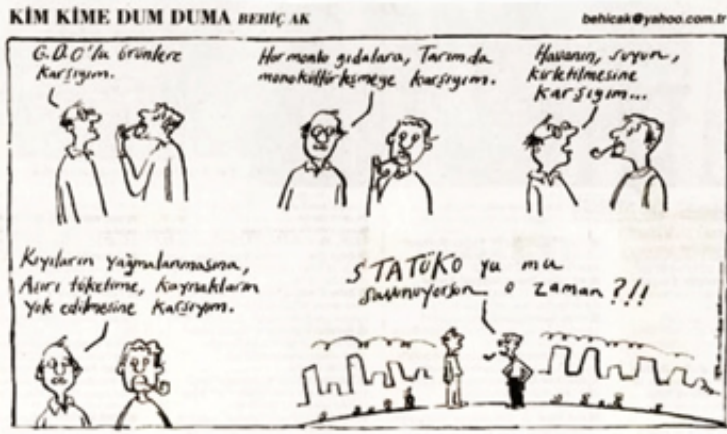 KİM KİME DUM DUMA BEHİÇ AK
behicak@yahoo.com.tr
G.D.O'lu ürünlere
karşıyım.
Hormonlu gıdalara, Tarımda
monokültürleşmeye karşıyım.
Havanın, suyun,
kirletilmesine
karşıyım...
Kıyıların yağmalanmasına,
Aşırı tüketime, kaynakların
yok edilmesine karşıyım.
STATÜKO yu mu
savunuyorsun o zaman?!!